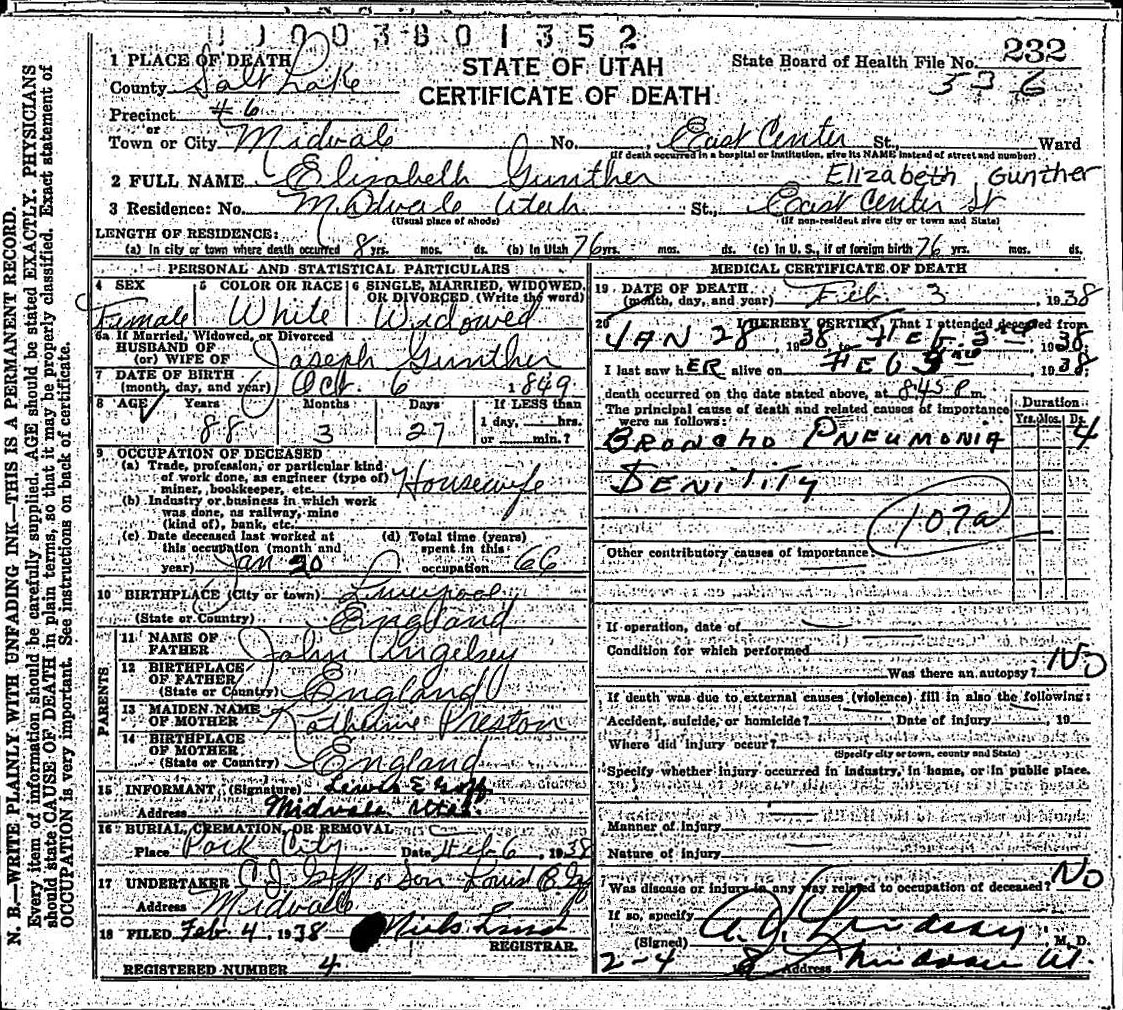 0003801352
1 PLACE OF DEATH
STATE OF UTAH
State Board of Health File No. 232
County Salt Lake
536
CERTIFICATE OF DEATH
Precinct # 6
or
Town or City Midvale No. , East Center St., Ward
(If death occurred in a hospital or institution, give its NAME instead of street and number)
2 FULL NAME Elizabeth Gunther Elizabeth Gunther
3 Residence: No. Midvale Utah St., East Center St
(Usual place of abode) (If non-resident give city or town and State)
LENGTH OF RESIDENCE:
(a) In city or town where death occurred 8 yrs. mos. ds. (b) In Utah 76 yrs. mos. ds. (c) In U. S., if of foreign birth 76 yrs. mos. ds.
PERSONAL AND STATISTICAL PARTICULARS
4 SEX Female
5 COLOR OR RACE White
6 SINGLE, MARRIED, WIDOWED, OR DIVORCED (Write the word) Widowed
6a If Married, Widowed, or Divorced
HUSBAND OF
(or) WIFE OF Joseph Gunther
7 DATE OF BIRTH
(month, day, and year) Oct. 6 1849
8 AGE Years Months Days If LESS than
88 3 27 1 day, hrs.
or min.?
9 OCCUPATION OF DECEASED
(a) Trade, profession, or particular kind
of work done, as engineer (type of)
miner, bookkeeper, etc. Housewife
(b) Industry or business in which work
was done, as railway, mine
(kind of), bank, etc.
(c) Date deceased last worked at
this occupation (month and
year) Jan 20
(d) Total time (years)
spent in this
occupation 66
10 BIRTHPLACE (City or town) Liverpool
(State or Country) England
PARENTS
11 NAME OF
FATHER John Angelsey
12 BIRTHPLACE
OF FATHER
(State or Country) England
13 MAIDEN NAME
OF MOTHER Katherine Preston
14 BIRTHPLACE
OF MOTHER
(State or Country) England
15 INFORMANT (Signature) Lewis E Goff
Address Midvale Utah
16 BURIAL, CREMATION, OR REMOVAL
Place Park City Date Feb 6, 1938
17 UNDERTAKER C J Goff & Son
Address Midvale
18 FILED Feb. 4, 1938 Niels Lind
REGISTRAR.
REGISTERED NUMBER 4
MEDICAL CERTIFICATE OF DEATH
19 DATE OF DEATH
(month, day, and year) Feb. 3, 1938
20 I HEREBY CERTIFY, That I attended deceased from
JAN 28, 1938 to FEB 3rd, 1938
I last saw hER alive on FEB 3rd, 1938;
death occurred on the date stated above, at 8:45 P. m.
The principal cause of death and related causes of importance
were as follows:
Duration
Yrs. Mos. Ds.
BRONCHO PNEUMONIA 4
SENILITY
107a
Other contributory causes of importance
If operation, date of
Condition for which performed
Was there an autopsy? NO
If death was due to external causes (violence) fill in also the following:
Accident, suicide, or homicide? Date of injury , 19
Where did injury occur?
(Specify city or town, county and State)
Specify whether injury occurred in industry, in home, or in public place.
Manner of injury
Nature of injury
Was disease or injury in any way related to occupation of deceased? NO
If so, specify
(Signed) A. J. Lindsay M. D.
2-4 8 Address Midvale Ut.
N. B.—WRITE PLAINLY WITH UNFADING INK—THIS IS A PERMANENT RECORD.
Every item of information should be carefully supplied. AGE should be stated EXACTLY. PHYSICIANS
should state CAUSE OF DEATH in plain terms, so that it may be properly classified. Exact statement of
OCCUPATION is very important. See instructions on back of certificate.